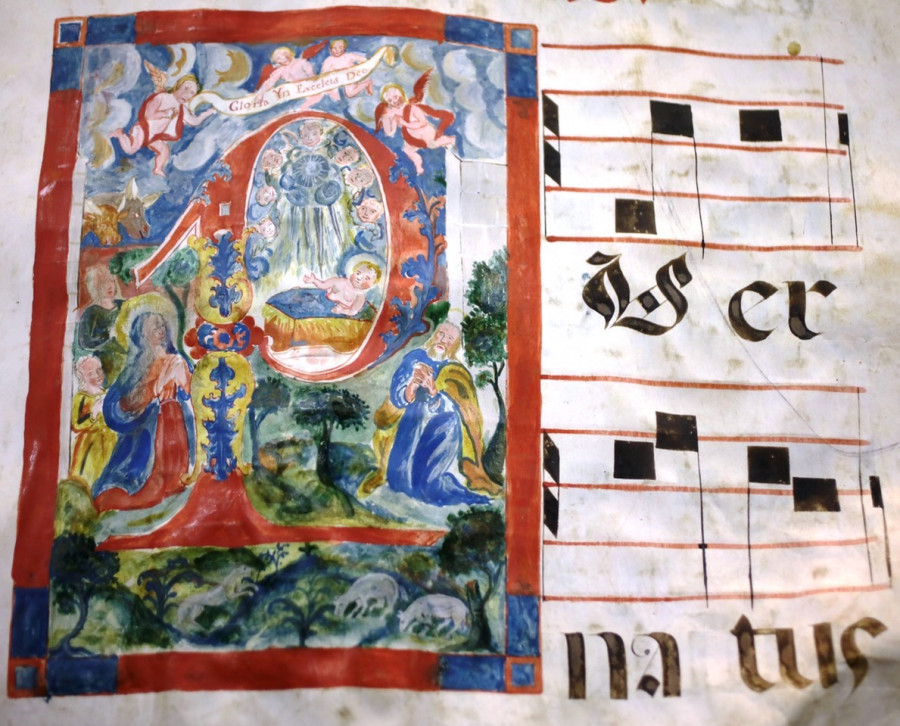 Gloria Yn Excelcis Deo
P Ver
natus